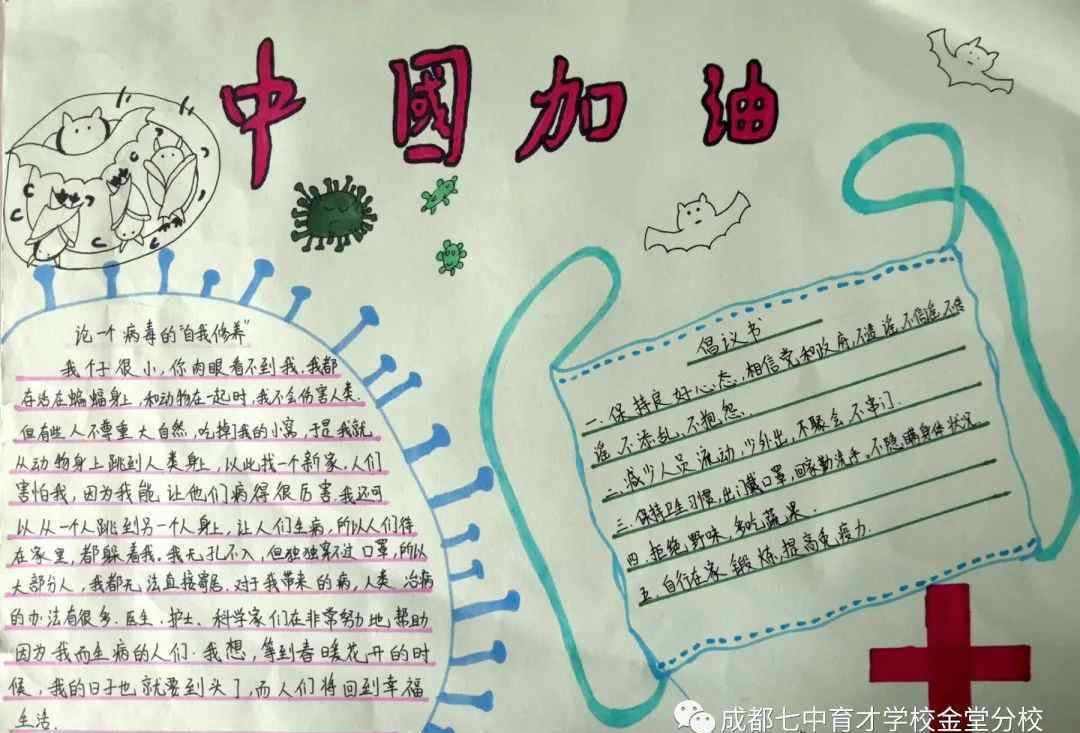 中國加油
论一个病毒的“自我修养”
我个子很小,你肉眼看不到我,我都
存活在蝙蝠身上,和动物在一起时,我不会伤害人类.
但有些人不尊重大自然,吃掉了我的小窝,于是我就
从动物身上跳到人类身上,以此找一个新家.人们
害怕我,因为我能让他们病得很厉害.我还可
以从一个人跳到另一个人身上,让人们生病,所以人们待
在家里,都躲着我。我无孔不入,但独独穿不过口罩,所以
大部分人,我都无法直接寄居.对于我带来的病,人类治病
的办法有很多.医生、护士、科学家们在非常努力地帮助
因为我而生病的人们.我想,等到春暖花开的时
候,我的日子也就要到头了,而人们将回到幸福
生活.
倡议书
一.保持良好心态,相信党和政府,不造谣不信谣不传
谣,不添乱,不抱怨.
二.减少人员流动,少外出,不聚会,不串门.
三.保持卫生习惯,出门戴口罩,回家勤洗手,不隐瞒身体状况.
四.拒绝野味,多吃蔬果.
五.自行在家锻炼,提高免疫力.
成都七中育才学校金堂分校